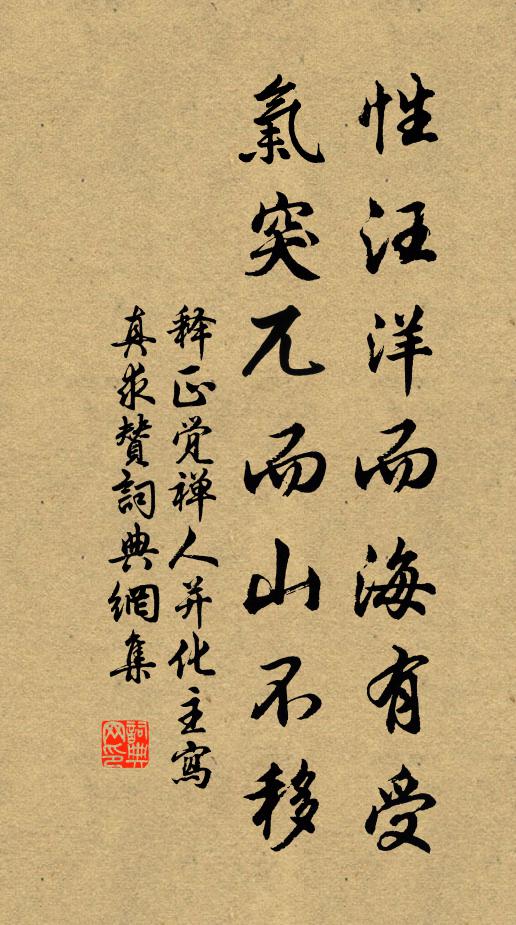 性汪洋而海有受
氣突兀而山不移
释正觉禅人并化主寫
真求贊詞典網集
詞典网印